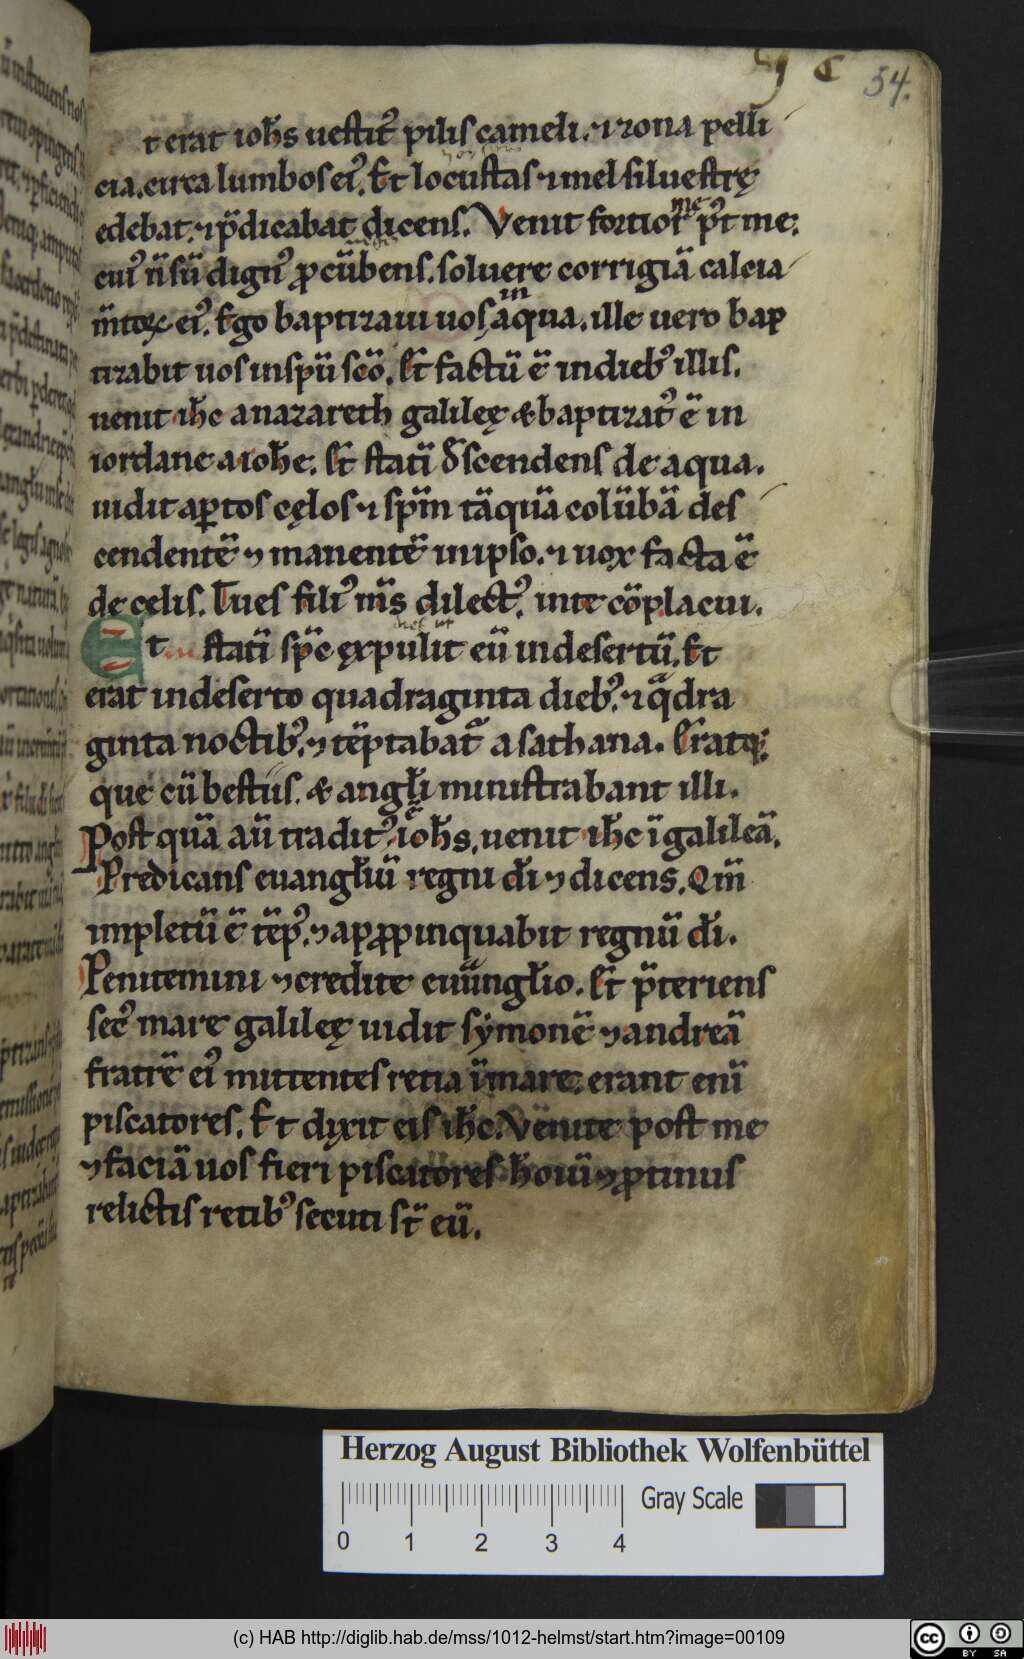 54.
t erat ioh̄s uestit᷒ pilis cameli. ⁊ zona pelli
cia. circa lumbos ei᷒. Et locustas ⁊ mel siluestrę
edebat. ⁊ p̄dicabat dicens. Venit fortior me p᷒t me:
cui᷒ n̄ sū dign᷒ ꝓcūbens. soluere corrigiā calcia
m̄toꝝ ei᷒. Ego baptizaui uos in aqua. ille uero bap
tizabit uos in sp̄u sc̄o. Et factū ē in dieb᷒ illis.
uenit ih̄c a nazareth galileę & baptizat᷒ ē in
iordane a ioh̄e. Et stati̅ descendens de aqua.
uidit aꝑtos cęlos ⁊ sp̄m tāquā colūbā des
cendentē ⁊ manentē in ipso. ⁊ uox facta ē
de celis. Tu es fili᷒ m̄s dilect᷒. in te cōplacui.
Et stati̅ sp̄c ęxpulit eū in desertū. Et
erat in deserto quadraginta dieb᷒. ⁊ qᵃdra
ginta noctib᷒. ⁊ tēptabat᷒ a sathana. Eratq;
que cū bestiis. & angl̄i ministrabant illi.
Post quā aū tradit᷒ ē ioh̄s. uenit ih̄c ī galileā.
Predicans euangl̄iū regni d̄i ⁊ dicens. Qm̄
impletū ē tēp᷒. ⁊ appꝓpinquabit regnū d̄i.
Penitemini ⁊ credite euungl̄io. Et p̄teriens
sec᷒ mare galileę uidit symonē ⁊ andreā
fratrē ei᷒ mittentes retia ī mare. erant eni̅
piscatores. Et dixit eis ih̄c. Venite post me
⁊ faciā uos fieri piscatores hōiū ⁊ ꝓtinus
relictis retib᷒ secuti st̄ eū.
Herzog August Bibliothek Wolfenbüttel
Gray Scale
0 1 2 3 4
(c) HAB http://diglib.hab.de/mss/1012-helmst/start.htm?image=00109
cc BY SA